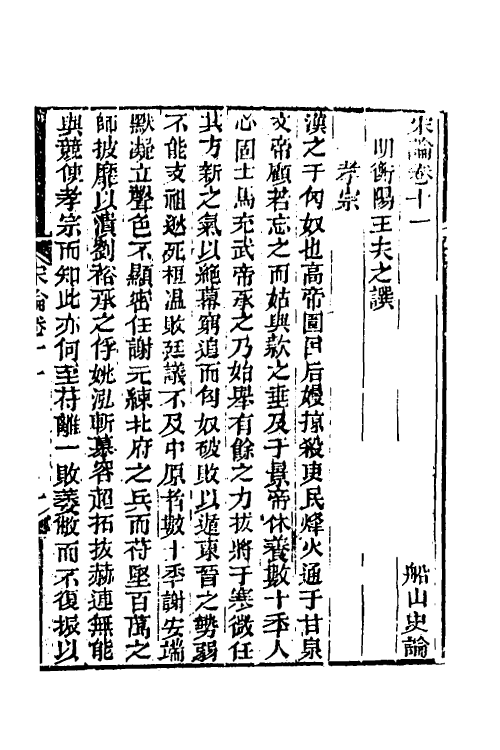 宋論卷十一
船山史論
明衡陽王夫之譔
孝宗
漢之于匈奴也高帝圍呂后嫚掠殺吏民烽火通于甘泉
文帝顧若忘之而姑與款之垂及于景帝休養數十秊人
心固士馬充武帝承之乃始舉有餘之力拔將于寒微任
其方新之氣以絶幕窮追而匈奴破敗以遁東晉之勢弱
不能支祖逖死桓温敗廷議不及中原者數十秊謝安端
默凝立聲色不顯密任謝元練北府之兵而苻堅百萬之
師披靡以潰劉裕承之俘姚泓斬慕容超拓拔赫連無能
與競使孝宗而知此亦何至苻離一敗萎敝而不復振以
宋論卷十一